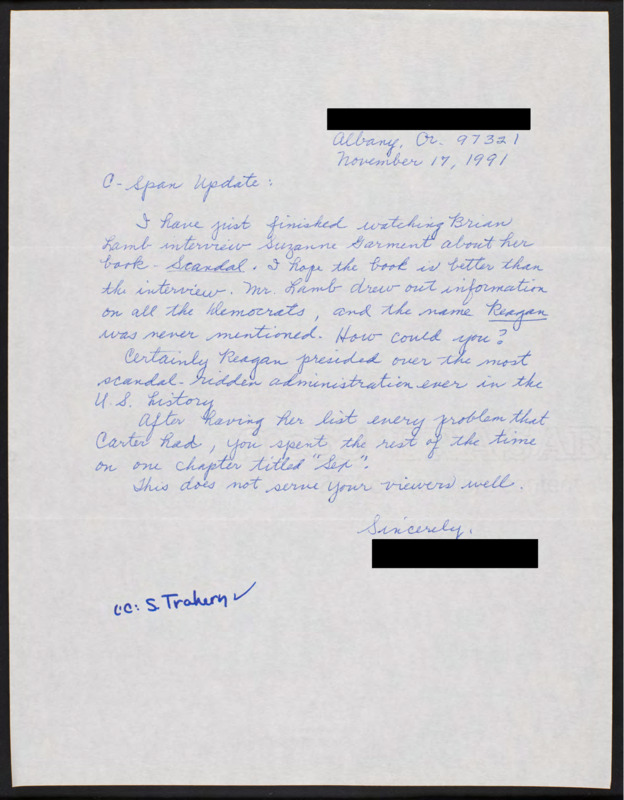 Albany, Or. 97321
November 17, 1991
C-Span Update:
I have just finished watching Brian
Lamb interview Suzanne Garment about her
book - Scandal. I hope the book is better than
the interview. Mr. Lamb drew out information
on all the Democrats, and the name Reagan
was never mentioned. How could you?
Certainly Reagan presided over the most
scandal-ridden administration ever in the
U.S. history
After having her list every problem that
Carter had, you spent the rest of the time
on one chapter titled "Sex".
This does not serve your viewers well.
Sincerely,
cc: S. Trahern ✓